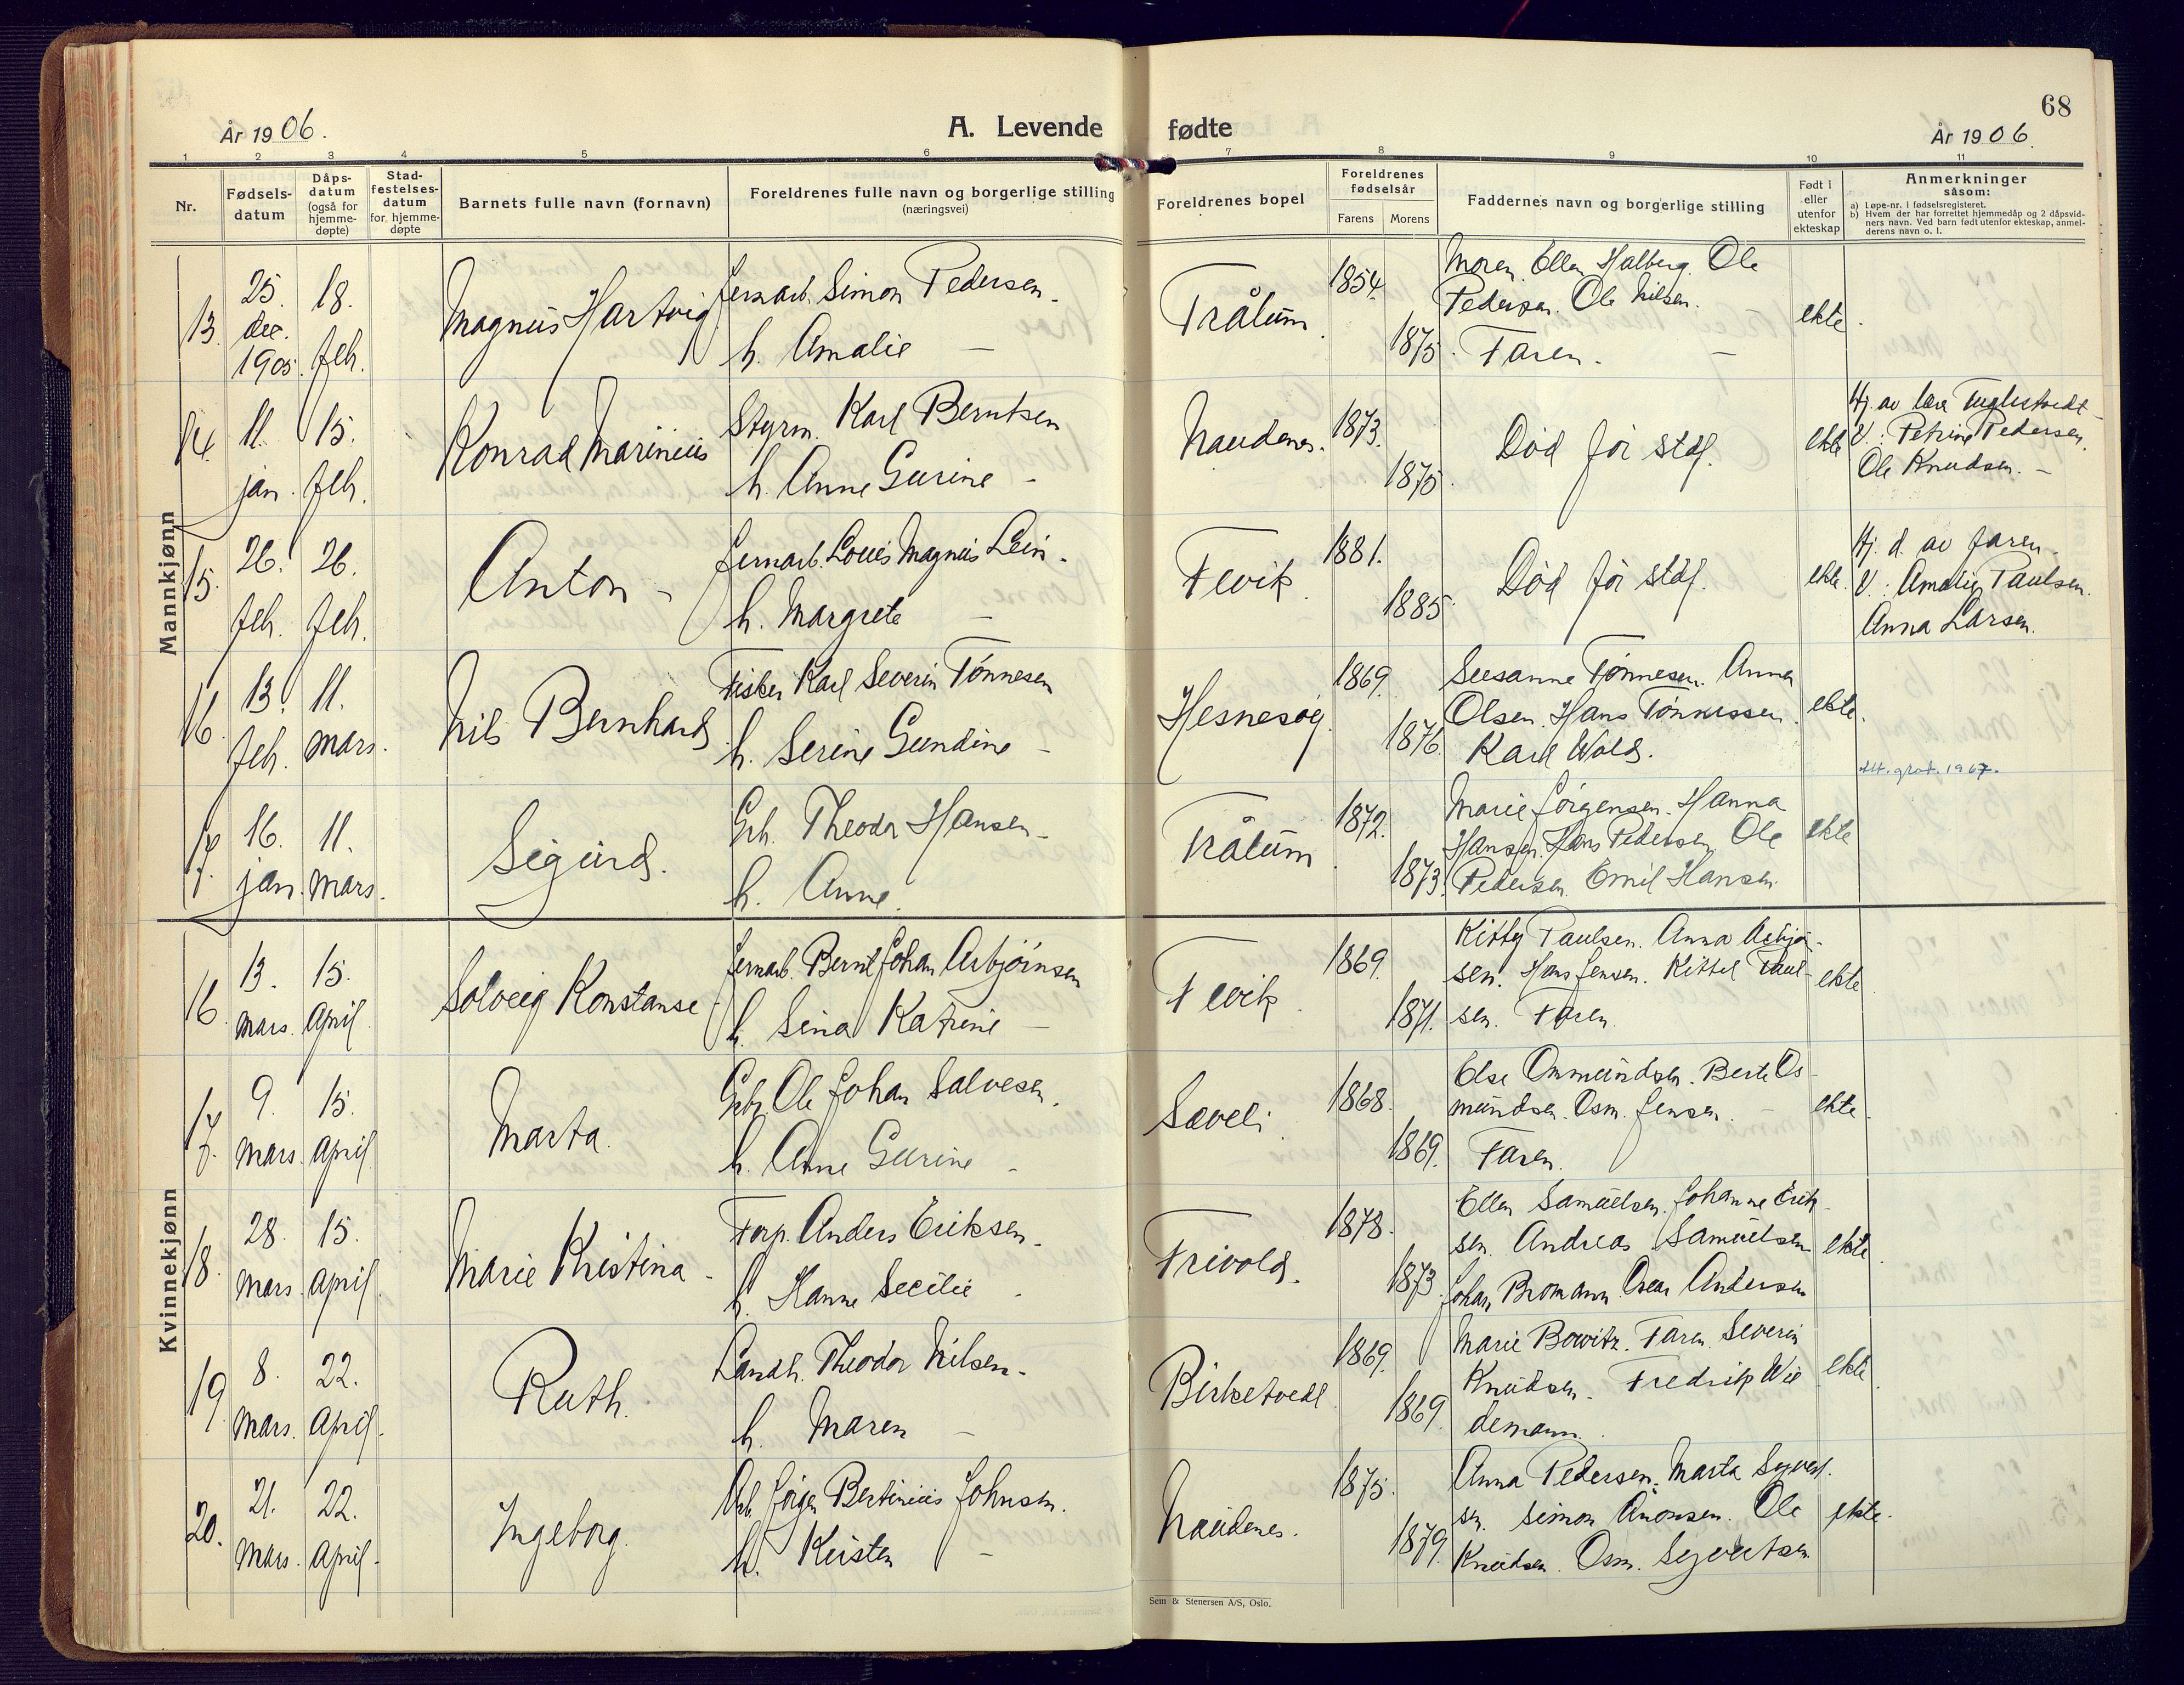 68
År 1906.
A. Levende fødte
År 1906.
1 2 3 4 5 6 7 8 9 10 11
Nr.
Fødsels-
datum
Dåps-
datum
(også for
hjemme-
døpte)
Stad-
festelses-
datum
for hjemme-
døpte
Barnets fulle navn (fornavn)
Foreldrenes fulle navn og borgerlige stilling
(næringsvei)
Foreldrenes bopel
Foreldrenes
fødselsår
Farens Morens
Faddernes navn og borgerlige stilling
Født i
eller
utenfor
ekteskap
Anmerkninger
såsom:
a) Løpe-nr. i fødselsregisteret.
b) Hvem der har forrettet hjemmedåp og 2 dåpsvid-
ners navn. Ved barn født utenfor ekteskap, anmel-
derens navn o. l.
Mannkjønn
13. 25. dec. 1905. 18. feb.
Magnus Hartvig
Jernarb. Simon Pedersen.
h. Amalie —
Trålum.
1854. 1875.
Moren. Ellen Halberg. Ole
Pedersen. Ole Nilsen.
Faren. —
ekte.
14. 11. jan. 15. feb.
Konrad Marinius
Styrm. Karl Berntsen
h. Anne Gurine -
Naudenes.
1873. 1875.
Død før stdf.
ekte
Hj. av lær. Fuglestvedt
V.: Petrine Pedersen.
Ole Knudsen. —
15. 26. feb. 26. feb.
Anton -
Jernarb. Louis Magnus Lein.
h. Margrete —
Fevik.
1881. 1885.
Død før stdf.
ekte.
Hj. d. av faren.
V.: Amalie Paulsen.
Anna Larsen.
16. 13. feb. 11. mars.
Nils Bernhard
Fisker Karl Severin Tønnesen
h. Serine Gundine —
Hesnesøy.
1869. 1876.
Susanne Tønnesen. Anna
Olsen. Hans Tønnessen.
Karl Wold.
ekte.
Att. grat. 1967.
17. 16. jan. 11. mars.
Sigurd.
Grb. Theodor Hansen.
h. Anne.
Trålum.
1872. 1873.
Marie Jørgensen. Hanna
Hansen. Hans Pedersen. Ole
Pedersen. Emil Hansen.
ekte
Kvinnekjønn
16. 13. mars. 15. April.
Solveig Konstanse
Jernarb. Bernt Johan Asbjørnsen
h. Sina Katrine —
Fevik.
1869. 1871.
Kitty Paulsen. Anna Asbjø-
sen. Hans Jensen. Kittel Paul-
sen. Faren.
ekte.
17. 9. mars. 15. April
Marta.
Grb. Ole Johan Salvesen.
h. Anne Gurine -
Sæveli.
1868. 1869.
Else Onmundsen. Berte Os-
mundsen. Osm. Jensen. —
Faren.
ekte.
18. 28. mars. 15. april
Marie Kristina.
Forp. Anders Eriksen.
h. Hanne Secilie.
Frivold.
1878. 1873.
Ellen Samuelsen. Johanne Erik-
sen. Andreas Samuelsen
Johan Bromann. Oscar Andersen
ekte.
19. 8. mars. 22. april.
Ruth.
Landh. Theodor Nilsen.
h. Maren —
Birketvedt.
1869. 1869.
Marie Bowitz. Faren. Severin
Knudsen. Fredrik Wie
demann.
ekte.
20. 21. mars. 22. april.
Ingeborg.
Arb. Jørgen Bertinius Johnsen.
h. Kirsten —
Naudenes.
1875. 1879.
Anna Pedersen. Marta Syvert-
sen. Simon Aronsen. Ole
Knudsen. Osm. Syvertsen.
ekte.
Sem & Stenersen A/S, Oslo.